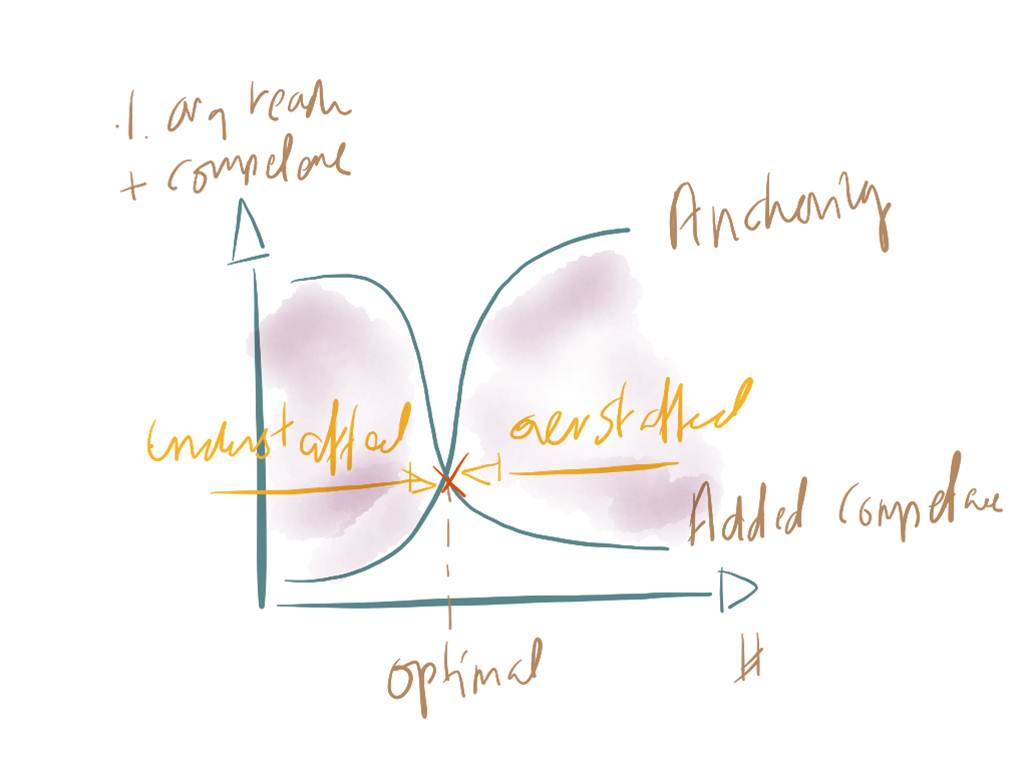 ·/. org reach
+ competence
Anchoring
understaffed
overstaffed
Added competence
optimal
#